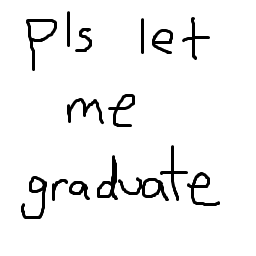 Pls let
me
graduate